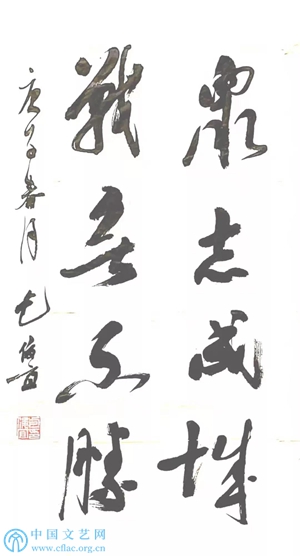 眾志成城
戰無不勝
庚子春月
中国文艺网
www.cflac.org.cn